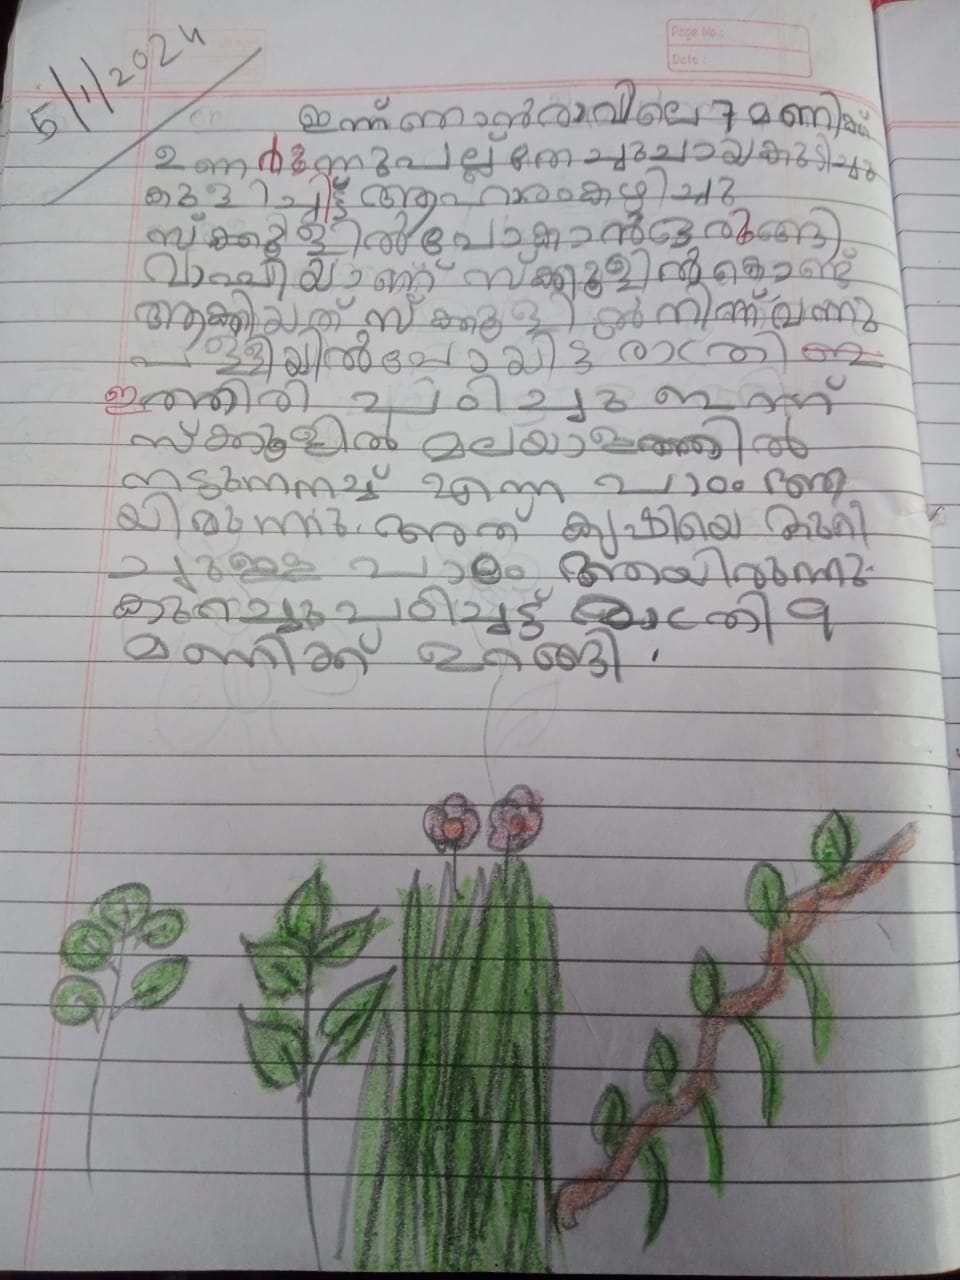 Page No :
Date :
5/1/2024
ഇന്ന് ഞാൻ രാവിലെ 7 മണിക്ക്
ഉണർന്നു പല്ല് തേച്ചു ചായ കുടിച്ചു
കുളിച്ചിട്ട് ആഹാരം കഴിച്ചു
സ്ക്കൂളിൽ പോകാൻ ഒരുങ്ങി
വാപ്പിയാണ് സ്ക്കൂളിൽ കൊണ്ട്
ആക്കിയത് സ്ക്കൂളിൽ നിന്ന് വന്നു
പള്ളിയിൽ പോയിട്ട് രാത്രി
ഇത്തിരി പഠിച്ചു ഇന്ന്
സ്ക്കൂളിൽ മലയാളത്തിൽ
നടുന്നനപ്പ് എന്ന പാഠം ആ
യിരുന്നു. അത് കൃഷിയെ കുറി
ച്ചുള്ള പാഠം ആയിരുന്നു.
കുറച്ചു പഠിച്ചിട്ട് രാത്രി 9
മണിക്ക് ഉറങ്ങി.